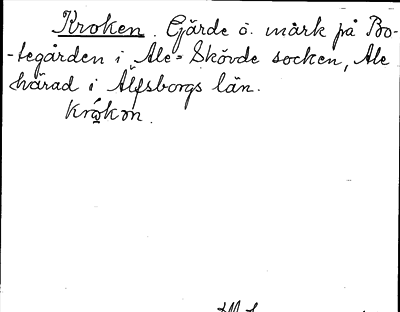 Kroken. Gärde o. märk på Bo-
-tegården i Ale-Skövde socken, Ale
härad i Älfsborgs län.
Krǫ́kǝn.